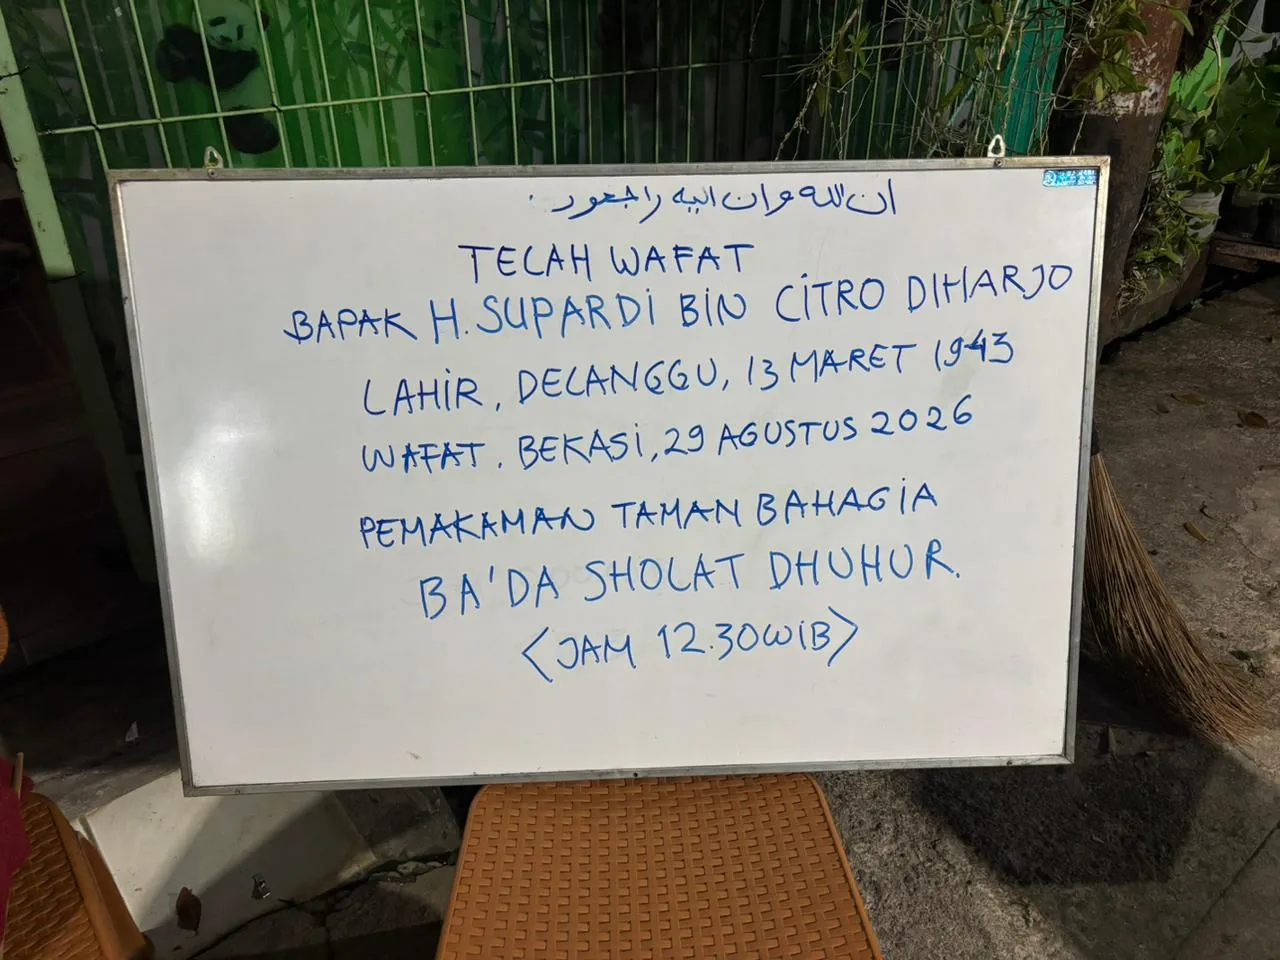 ان لله وان اليه راجعون.
TELAH WAFAT
BAPAK H. SUPARDI BIN CITRO DIHARJO
LAHIR, DELANGGU, 13 MARET 1943
WAFAT. BEKASI, 29 AGUSTUS 2026
PEMAKAMAN TAMAN BAHAGIA
BA'DA SHOLAT DHUHUR.
<JAM 12.30 WIB>